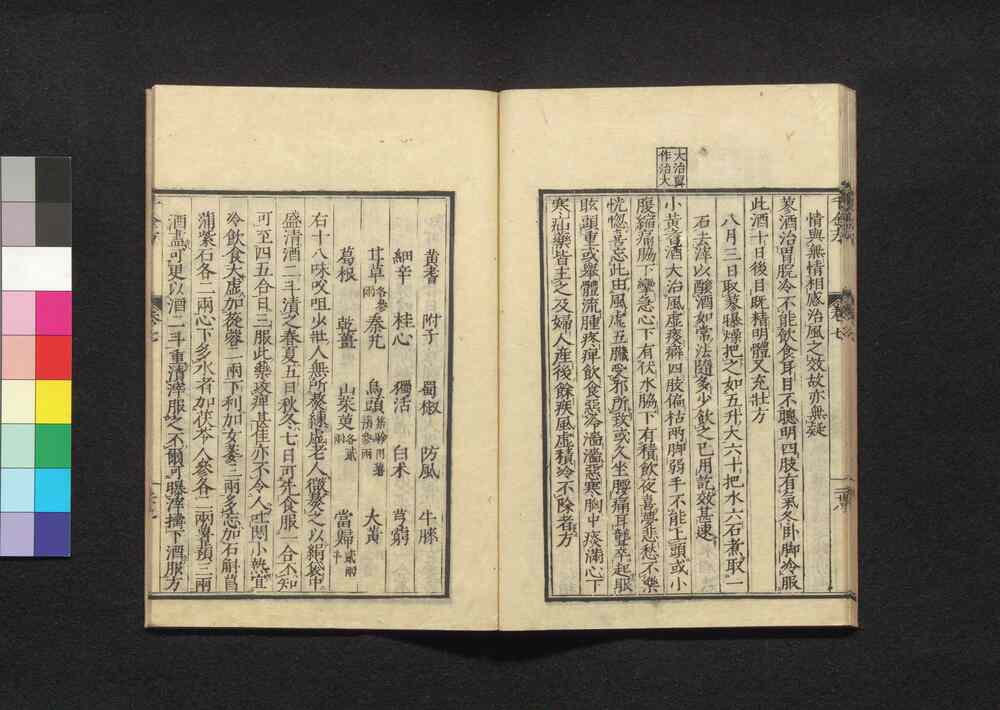 大治舅
作治大
情與無情相感治風之效故亦無疑
蓼酒治胃脘冷不能飲食耳目不聰明四肢有氣冬卧脚冷服
此酒十日後目既精明體又充壯方
八月三日取蓼曝燥把之如五升大六十把水六石煮取一
石去滓以釀酒如常法隨多少飲之已用訖效甚速
小黃耆酒大治風虛痰癖四肢偏枯兩脚弱手不能上頭或小
腹縮痛脇下攣急心下有伏水脇下有積飲夜喜夢悲愁不樂
恍惚喜忘此由風虛五臟受邪所致或久坐腰痛耳聾卒起眼
眩頭重或舉體流腫疼痺飲食惡冷澁澁惡寒胸中痰滿心下
寒疝藥皆主之及婦人產後餘疾風虛積冷不除者方
黃耆 附子 蜀椒 防風 牛膝
細辛 桂心 獨活 白术 芎藭
甘草各參兩 秦艽 烏頭 大黃
葛根 乾薑 山茱萸各貳兩 當歸貳兩半
右十八味㕮咀少壯人無所熬練虛老人微熬之以絹袋中
盛清酒二斗漬之春夏五日秋冬七日可先食服一合不知
可至四五合日三服此藥攻痺甚佳亦不令人吐悶小熱宜
冷飲食大虛加蓯蓉二兩下利加女萎三兩多忘加石斛菖
蒲紫石各二兩心下多水者加茯苓人參各二兩薯蕷三兩
酒盡可更以酒二斗重漬滓服之不爾可曝滓擣下酒服方